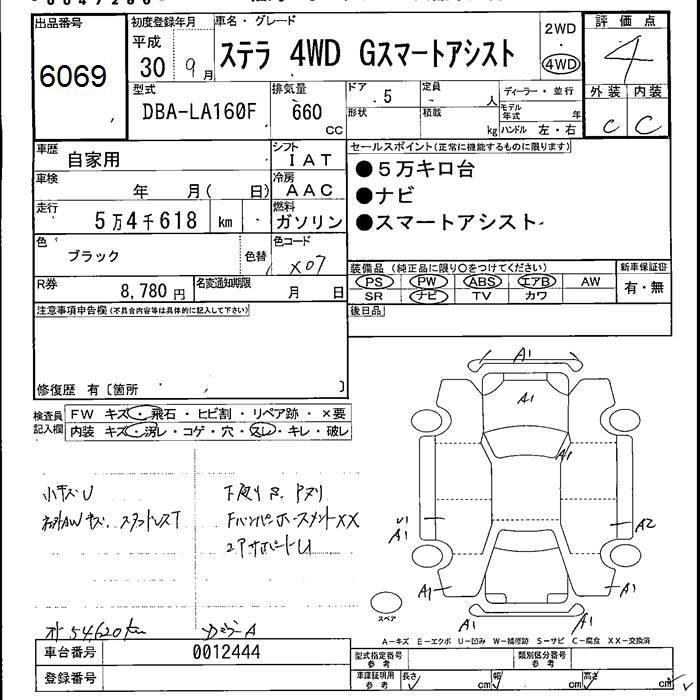 出品番号
6069
初度登録年月
平成
30 9月
車名・グレード
ステラ 4WD Gスマートアシスト
2WD
・
4WD
評価点
4
外装 内装
C C
型式
DBA-LA160F
排気量
660
CC
ドア
5
形状
定員
人
積載
kg
ディーラー・並行
モデル
年式 年
ハンドル 左・右
車歴
自家用
シフト
IAT
車検
年 月( 日)
冷房
AAC
走行
5万4千618 km
燃料
ガソリン
色
ブラック
色替
色コード
X07
R券
8,780 円
名変通知期限
月 日
セールスポイント(正常に機能するものに限ります)
●5万キロ台
●ナビ
●スマートアシスト
装備品(純正品に限り〇をつけてください)
PS PW ABS エアB AW
SR ナビ TV カワ
新車保証書
有・無
後日品
注意事項申告欄(不具合内容等は具体的に記入して下さい)
修復歴 有〔箇所 〕
検査員
記入欄
FW キズ・飛石・ヒビ割・リペア跡・×要
内装 キズ・汚レ・コゲ・穴・スレ・キレ・破レ
小キズU
下廻りS.アヌリ
A1
A1
A1
U1
A1
A2
A1
A1
A1
A1
スペア
オ 54620km
A-キズ E-エクボ U-凹み W-補修跡 S-サビ C-腐食 XX-交換済
車台番号
0012444
登録番号
型式指定番号
参考
類別区分番号
参考
車庫証明用
参考
長さ cm
幅 cm
高さ cm